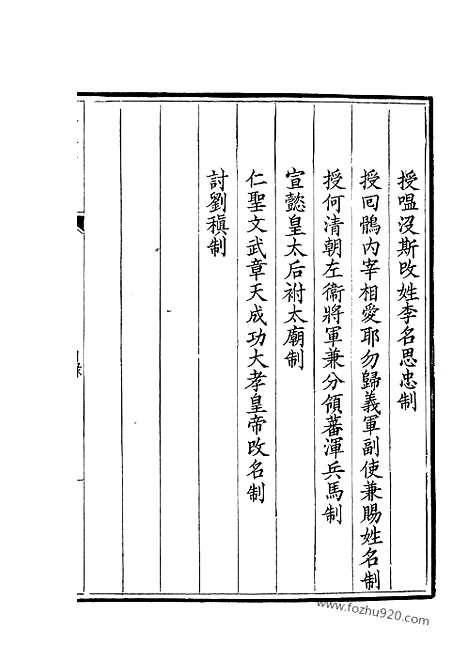 授嗢沒斯改姓李名思忠制
授回鶻內宰相愛耶勿歸義軍副使兼賜姓名制
授何清朝左衞將軍兼分領蕃渾兵馬制
宣懿皇太后祔太廟制
仁聖文武章天成功大孝皇帝改名制
討劉稹制
www.fozhu920.com